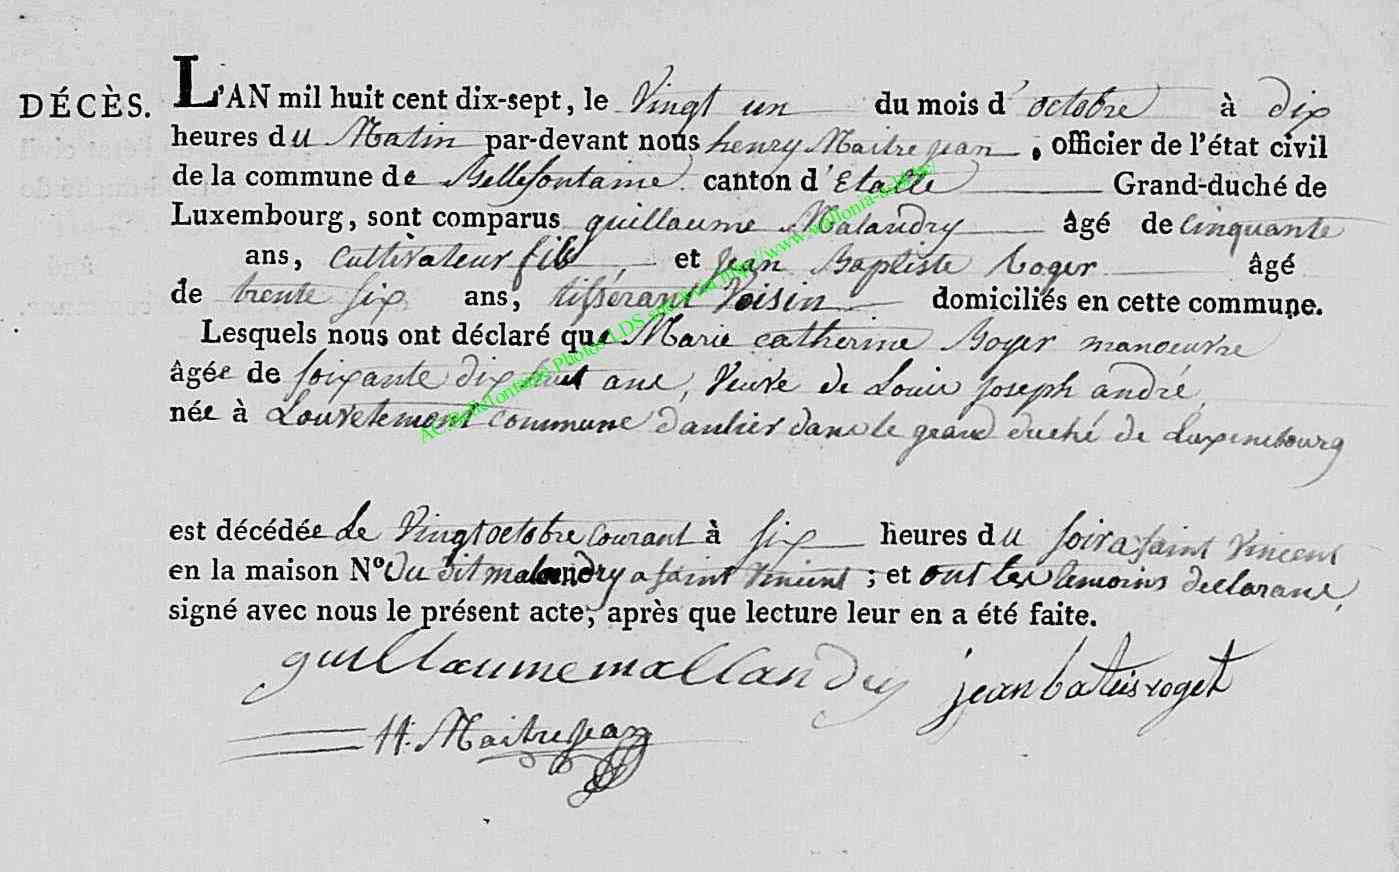 DÉCÈS. L'AN mil huit cent dix-sept, le Vingt un du mois d'octobre à dix
heures du Matin par-devant nous henry Maitrejean, officier de l'état civil
de la commune de Bellefontaine canton d'Etalle Grand-duché de
Luxembourg, sont comparus guillaume Malandry âgé de Cinquante
ans, Cultivateur fils, et Jean Baptiste Roger âgé
de trente six ans, tisserant Voisin domiciliés en cette commune.
Lesquels nous ont déclaré que Marie catherine Boyer manoeuvre
âgée de soixante dix huit ans, Veuve de Louis joseph andré,
née à Louvetemont commune d'anlier dans le grand duché de Luxembourg
est décédée Le Vingt octobre courant à six heures du soir a saint Vincent
en la maison N° du dit malandry a saint Vincent; et ont les temoins declarans,
signé avec nous le présent acte, après que lecture leur en a été faite.
guillaume mallandry jean batiis roget
H. Maitrejean